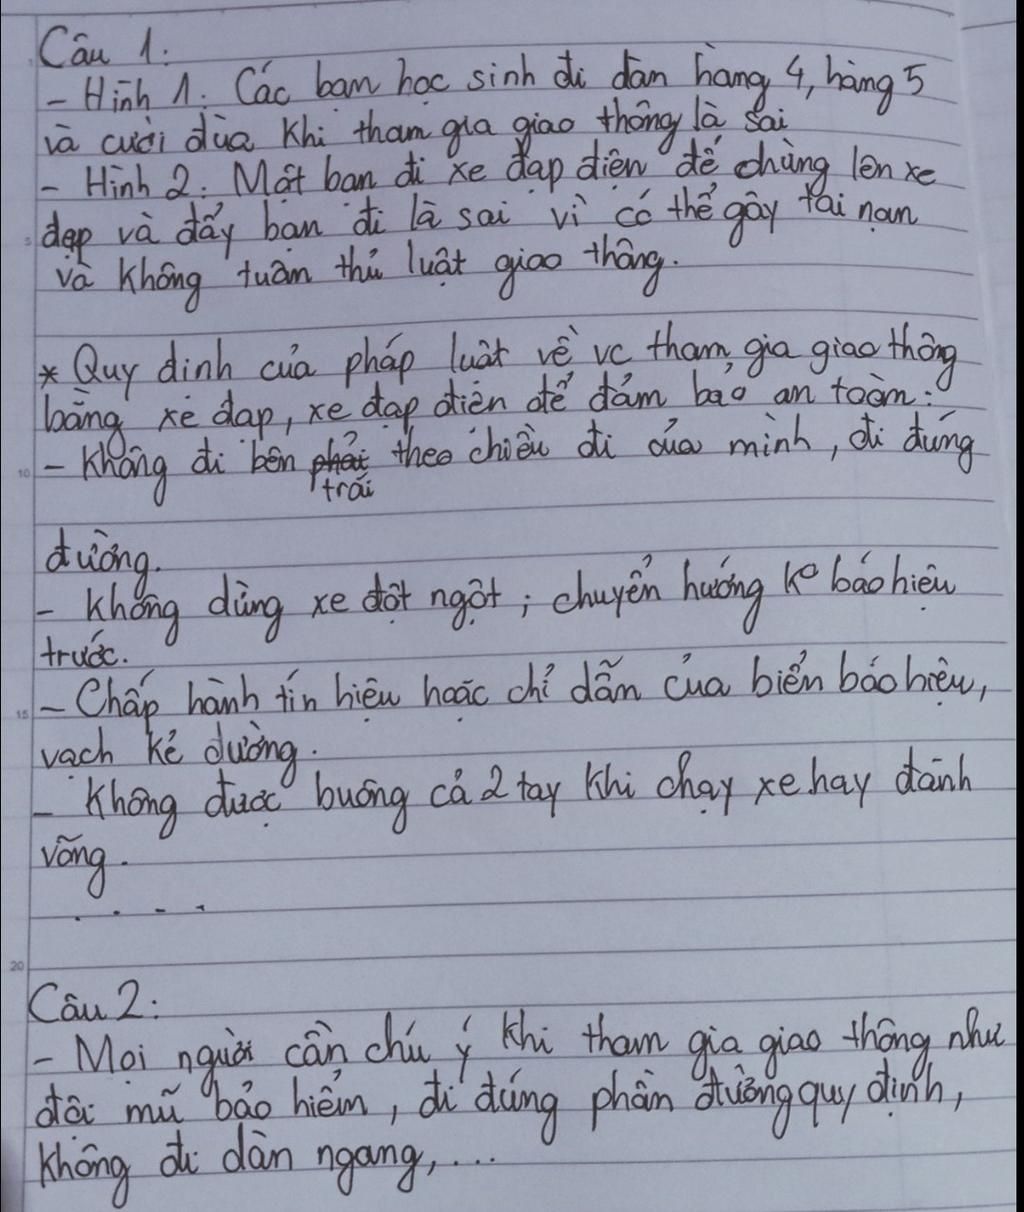 Câu 1:
- Hình 1: Các bạn học sinh đi dàn hàng 4, hàng 5
và cười đùa khi tham gia giao thông là sai
- Hình 2: Một bạn đi xe đạp điện để chùng lên xe
đạp và đẩy bạn đi là sai vì có thể gây tai nạn
và không tuân thủ luật giao thông.
* Quy định của pháp luật về vc tham gia giao thông
bằng xe đạp, xe đạp điện để đảm bảo an toàn:
- Không đi bên phải theo chiều đi của mình, đi đúng
trái
đường.
- Không dừng xe đột ngột; chuyển hướng ko báo hiệu
trước.
- Chấp hành tín hiệu hoặc chỉ dẫn của biển báo hiệu,
vạch kẻ đường.
- Không được buông cả 2 tay khi chạy xe hay đánh
võng.
. . - -
Câu 2:
- Mọi người cần chú ý khi tham gia giao thông như
đội mũ bảo hiểm, đi đúng phần đường quy định,
không đi dàn ngang,...